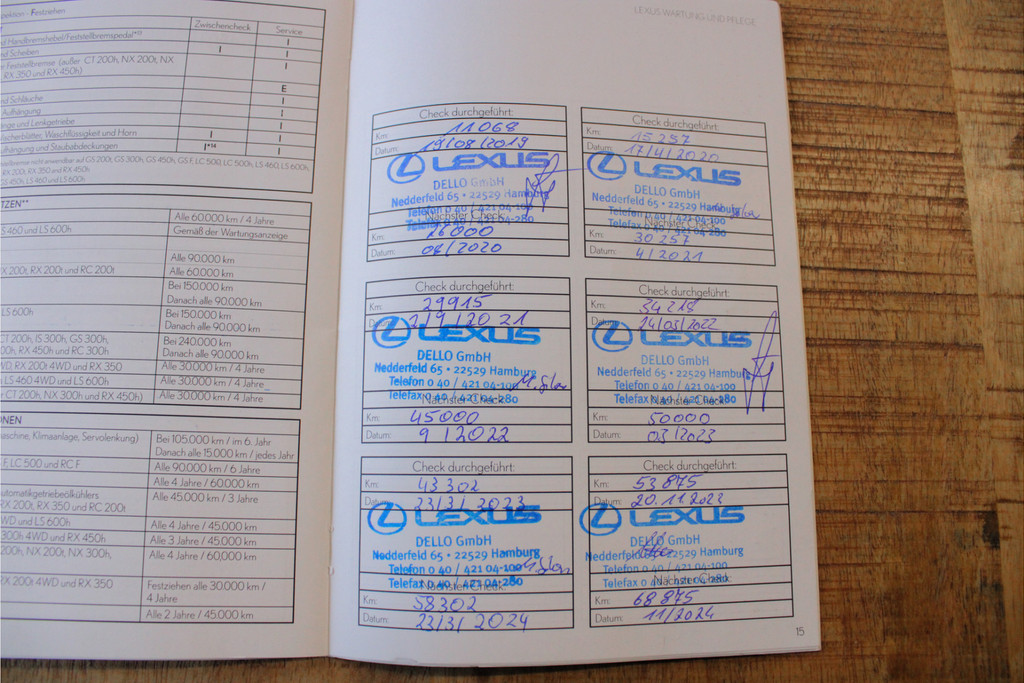 Inspektion - Festziehen
Zwischencheck
Service
Handbremshebel/Feststellbremspedal*¹³
I
nd Scheiben
I
I
Feststellbremse (außer CT 200h, NX 200t, NX
RX 350 und RX 450h)
I
E
und Schläuche
I
Aufhängung
I
und Lenkgetriebe
I
Wischerblätter, Waschflüssigkeit und Horn
I
I
und Staubabdeckungen
I*¹⁴
I
nicht anwendbar auf GS 200t, GS 300h, GS 450h, GS F, LC 500, LC 500h, LS 460, LS 600h,
RX 200t, RX 350 und RX 450h
GS 450h, LS 460 und LS 600h
TZEN**
Alle 60.000 km / 4 Jahre
S 460 und LS 600h
Gemäß der Wartungsanzeige
Alle 90.000 km
X 200t, RX 200t und RC 200t
Alle 60.000 km
Bei 150.000 km
Danach alle 90.000 km
LS 600h
Bei 150.000 km
Danach alle 90.000 km
CT 200h, IS 300h, GS 300h,
00h, RX 450h und RC 300h
Bei 240.000 km
Danach alle 90.000 km
WD, RX 200t 4WD und RX 350
Alle 30.000 km / 4 Jahre
LS 460 4WD und LS 600h
Alle 30.000 km / 4 Jahre
CT 200h, NX 300h und RX 450h)
Alle 30.000 km / 4 Jahre
ONEN
maschine, Klimaanlage, Servolenkung)
Bei 105.000 km / im 6. Jahr
Danach alle 15.000 km / jedes Jahr
F, LC 500 und RC F
Alle 90.000 km / 6 Jahre
Alle 4 Jahre / 60.000 km
utomatikgetriebeölkühlers
RX 200t, RX 350 und RC 200t
Alle 45.000 km / 3 Jahre
WD und LS 600h
Alle 4 Jahre / 45.000 km
300h 4WD und RX 450h
Alle 3 Jahre / 45.000 km
200h, NX 200t, NX 300h,
Alle 4 Jahre / 60.000 km
RX 200t 4WD und RX 350
Festziehen alle 30.000 km /
4 Jahre
Alle 2 Jahre / 45.000 km
LEXUS WARTUNG UND PFLEGE
Check durchgeführt:
Km: 11068
Datum: 19/08/2019
LEXUS
DELLO GmbH
Nedderfeld 65 • 22529 Hamburg
Telefon 0 40 / 421 04-100
Nächster Check:
Telefax 0 40 / 421 04-280
Km: 26000
Datum: 04/2020
Check durchgeführt:
Km: 15257
Datum: 17/4/2020
LEXUS
DELLO GmbH
Nedderfeld 65 • 22529 Hamburg
Telefon 0 40 / 421 04-100
Nächster Check:
Telefax 0 40 / 421 04-280
Km: 30257
Datum: 4/2021
Check durchgeführt:
Km: 29915
Datum: 2/9/2021
LEXUS
DELLO GmbH
Nedderfeld 65 • 22529 Hamburg
Telefon 0 40 / 421 04-100
Nächster Check:
Telefax 0 40 / 421 04-280
Km: 45000
Datum: 9/2022
Check durchgeführt:
Km: 34218
Datum: 24/03/2022
LEXUS
DELLO GmbH
Nedderfeld 65 • 22529 Hamburg
Telefon 0 40 / 421 04-100
Nächster Check:
Telefax 0 40 / 421 04-280
Km: 50000
Datum: 03/2023
Check durchgeführt:
Km: 43302
Datum: 23/3/2023
LEXUS
DELLO GmbH
Nedderfeld 65 • 22529 Hamburg
Telefon 0 40 / 421 04-100
Nächster Check:
Telefax 0 40 / 421 04-280
Km: 58302
Datum: 23/3/2024
Check durchgeführt:
Km: 53875
Datum: 20.11.2023
LEXUS
DELLO GmbH
Nedderfeld 65 • 22529 Hamburg
Telefon 0 40 / 421 04-100
Nächster Check:
Telefax 0 40 / 421 04-280
Km: 68875
Datum: 11/2024
15